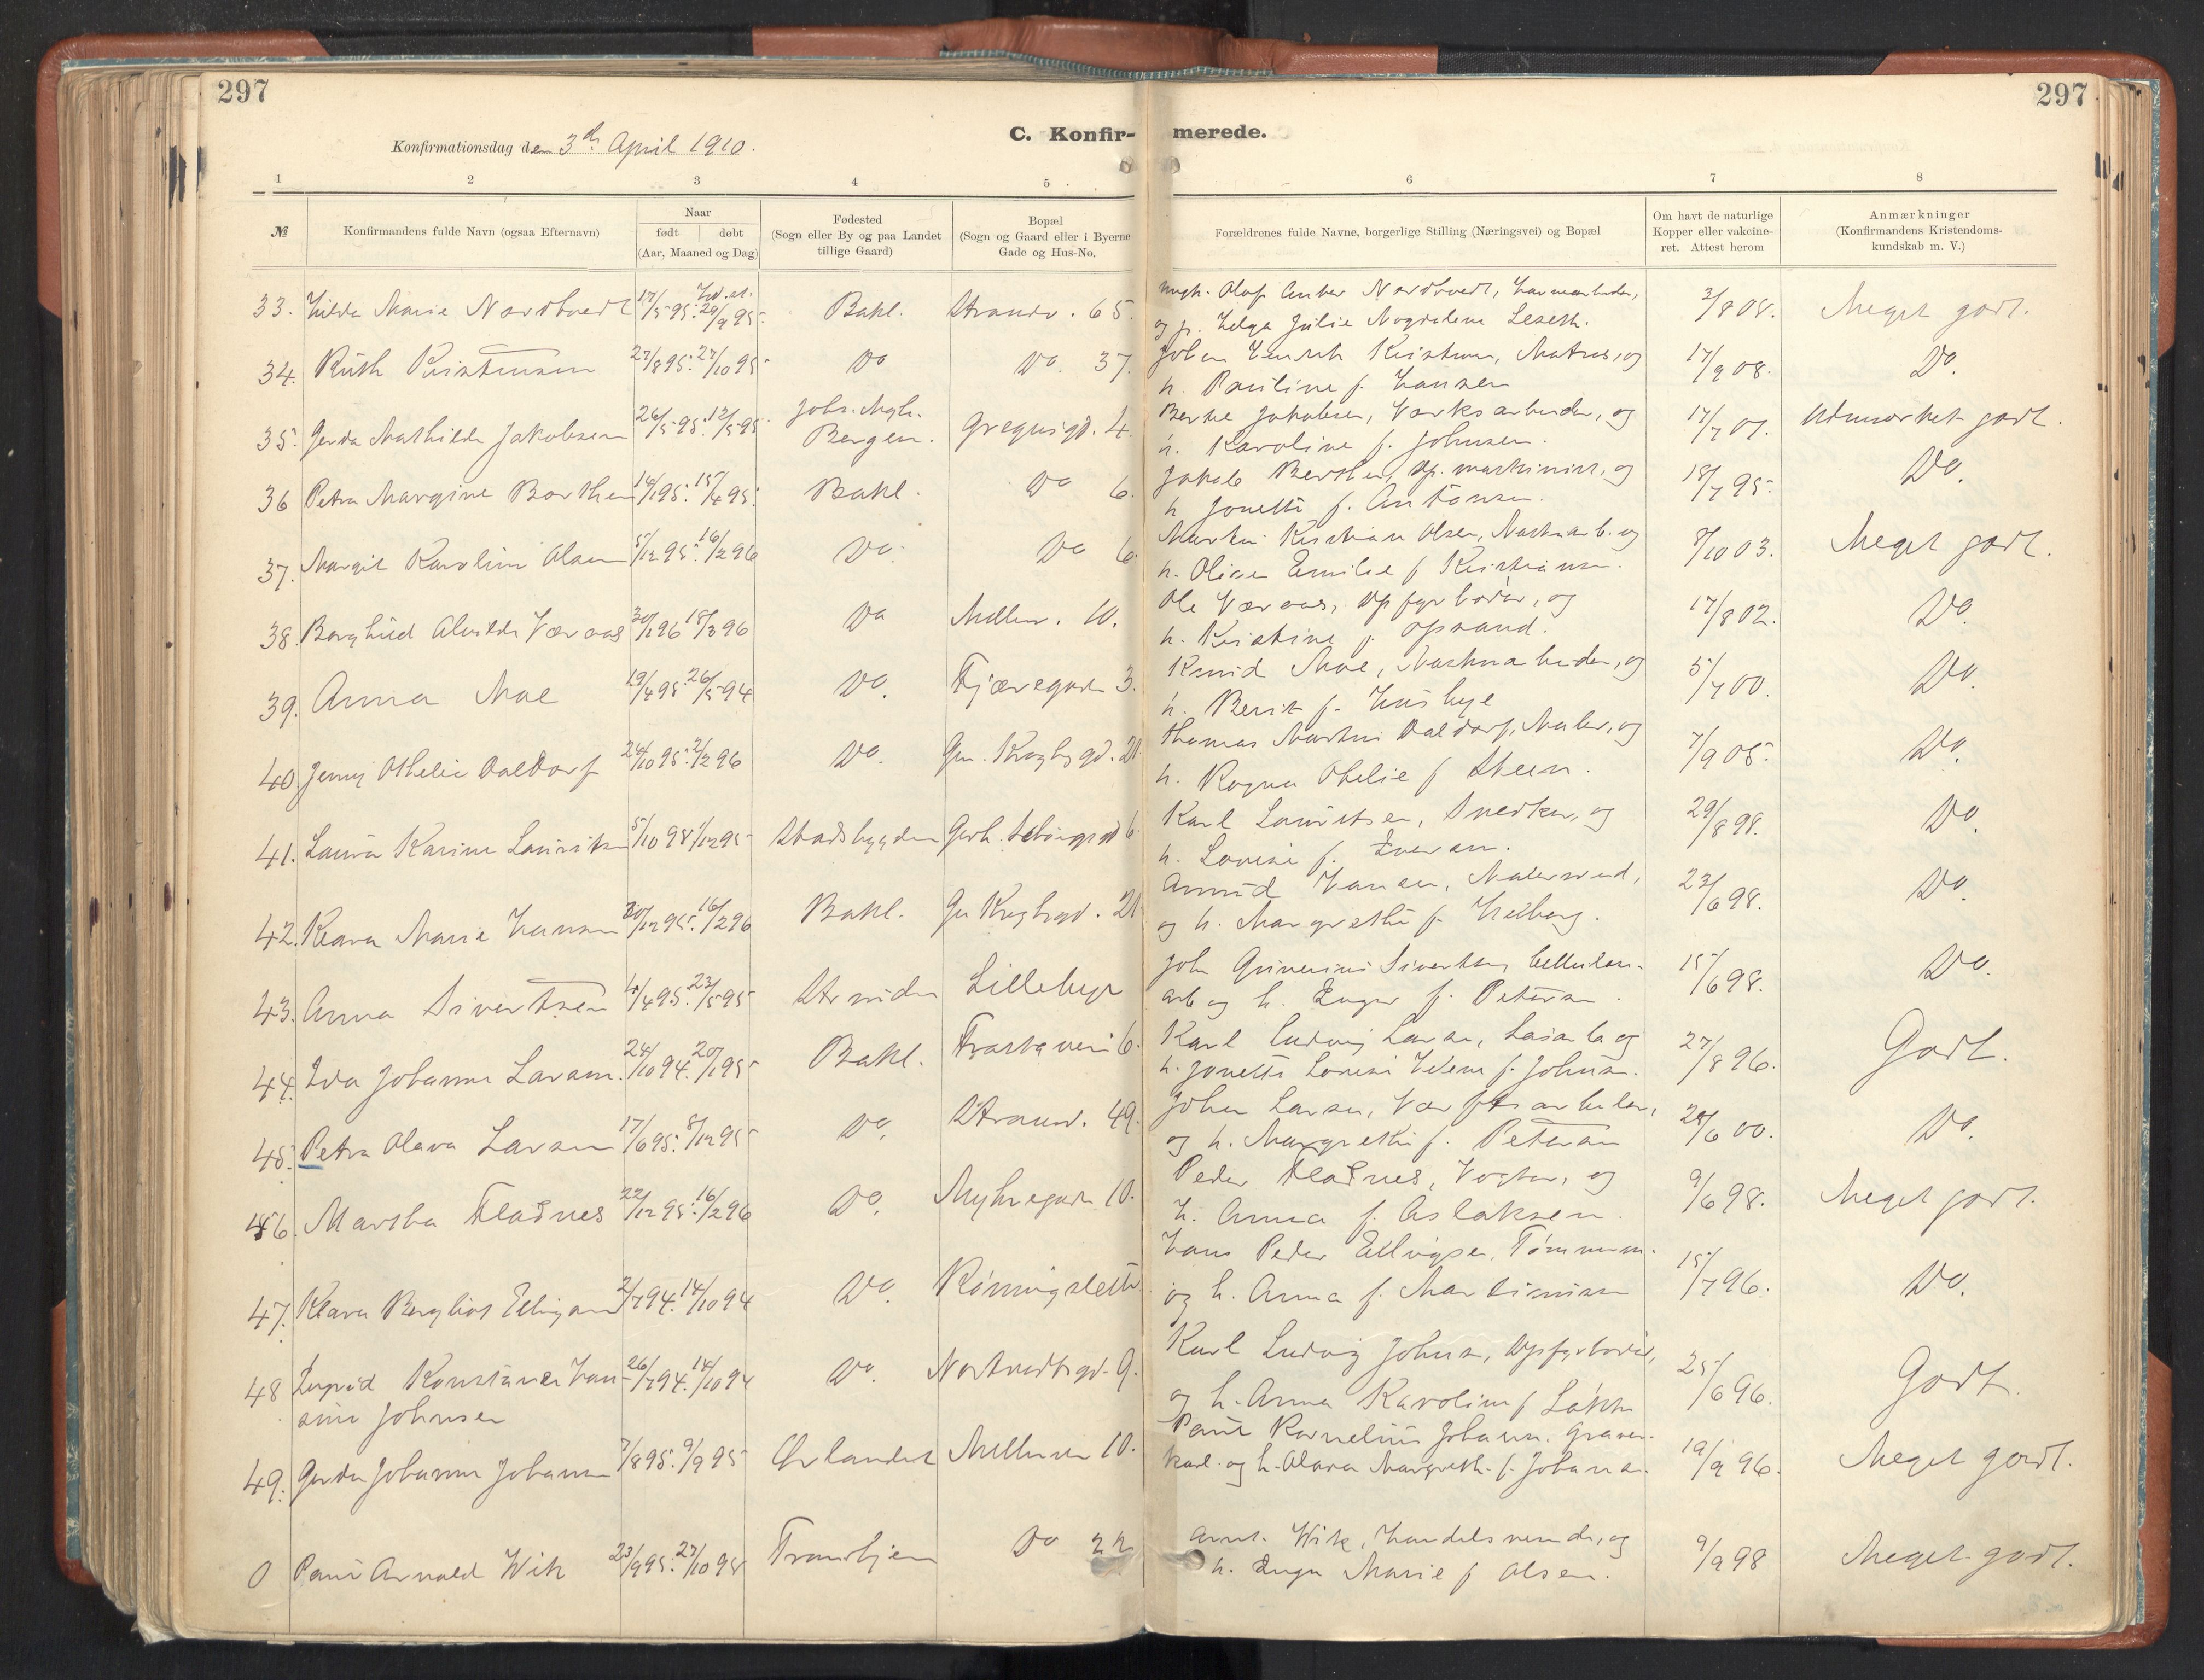 297
297
Konfirmationsdag den 3d. April 1910.
C. Konfir-
merede.
1 2 3 4 5 6 7 8
№
Konfirmandens fulde Navn (ogsaa Efternavn)
Naar
født | døbt
(Aar, Maaned og Dag)
Fødested
(Sogn eller By og paa Landet
tillige Gaard)
Bopæl
(Sogn og Gaard eller i Byerne
Gade og Hus-No.
Forældrenes fulde Navne, borgerlige Stilling (Næringsvei) og Bopæl
Om havt de naturlige
Kopper eller vakcine-
ret. Attest herom
Anmærkninger
(Konfirmandens Kristendoms-
kundskab m. V.)
33. Hilda Marie Nordtvedt 17/5 95. 29/9 95. Bakl. Strandv. 65. ungk. Olaf Nordtvedt, Havnearbeider, 3/8 08. Meget godt.
og p. Helga Julie Magdalene Leseth.
34. Ruth Kristensen 27/8 95. 27/10 95 Do Do. 37. Johan Henrik Kristensen, Matros, og 17/9 08. Do.
h. Pauline f. Hansen
35. Gerda Mathilde Jakobsen 26/5 95. Johs. Mgh. Bergen. Gregusgd. 4. Jakobsen, Værksarbeider, og 17/7 07. Udmærket godt.
h. Karoline f. Johnsen.
36 Petra Margine Barthen 14/1 95. 15/4 95. Bakl. Do 6. Jakob Berthen, Dp. maskinist, og 18/7 95. Do.
h Jonette f. Antonsen.
37. Margit Karoline Olsen 5/12 95. 16/2 96 Do. Do 6 Martin Kristian Olsen, og 8/10 03. Meget godt.
h. Oline Emilie f Kristiansen.
38. Borghild Alvilde Væraas 30/1 96 15/3 96 Do Mellemv. 10. Ole Væraas, Dpfyrbøder, og 17/8 02. Do.
h. Kristine f. Opsand.
39. Anna Moe 19/4 95. 26/5 94 Do. Fjæregaden 3. Knud Moe, og 5/7 00. Do.
h. Berit f. Husbye
40. Jenny Othelie Daldorf 24/10 95. 2/2 96 Do. Gm. Kroghsgd. 21 Thomas Martin Daldorf, Maler, og 7/9 05. Do.
h. Ragna Othelie f Steen.
41. Laura Karine Lauritsen 5/10 98 1/12 95 Stadsbygden Gerh. Schøningsgd 6 Karl Lauritsen, Snedker, og 29/8 98. Do.
h. Lovise f. Iversen.
42. Klara Marie Hansen 30/12 95. 16/2 96 Bakl. Gm Kroghsgd. 21 Hansen, Malersvend, 23/6 98. Do.
og h. Margrethe f. Helberg.
43. Anna Sivertsen 4/4 95. 23/5 95 Strinden Lillebye John Sivertsen, Cellulose- 15/6 98. Do.
arb og h. Inger f. Petersen.
44. Ida Johanne Larsen. 24/10 94. 20/1 95 Bakl. Frostaveien 6. Karl Ludvig Larsen, og 27/8 96. Godt.
h. Jonette Lovise Helene f. Johnsen.
45. Petra Olava Larsen 17/6 95. 8/12 95 Do. Strandv. 49. Johan Larsen, Værftsarbeider, 28/6 00. Do.
og h. Margrethe f. Petersen
46. Martha Fladnes 22/12 95. 16/2 96 Do. Myhregaden 10. Peder Fladnes, Vogter, og 9/6 98. Meget godt.
h. Anna f. Aslaksen
47. Klara Bergliot Ellingsen 2/7 94. 14/10 94 Do. Rønningsletta Hans Peder Ellingsen, Tømmerm. 15/7 96. Do.
og h. Anna f. Martinusen
48 Ingrid Konstance Han- 26/7 94. 14/10 94 Do. Nordtvedtsgd. 9. Karl Ludvig Johnsen, Dpfyrbøder, 25/6 96. Godt.
sine Johnsen
og h. Anna Karoline f Løkke
49. Gerda Johanne Johansen 7/8 95. 9/9 95 Ørlandet Mellemv 10. Paul Kornelius Johansen, Graver- 19/9 96. Meget godt.
karl. og h. Olava Margreth. f. Johansen.
0 Paul Arnold Wik 23/9 95. 27/10 95 Trondhjem Do 22 Arnt. Wik, Handelsreisende, og 9/9 98 Meget godt.
h. Inga Marie f Olsen.